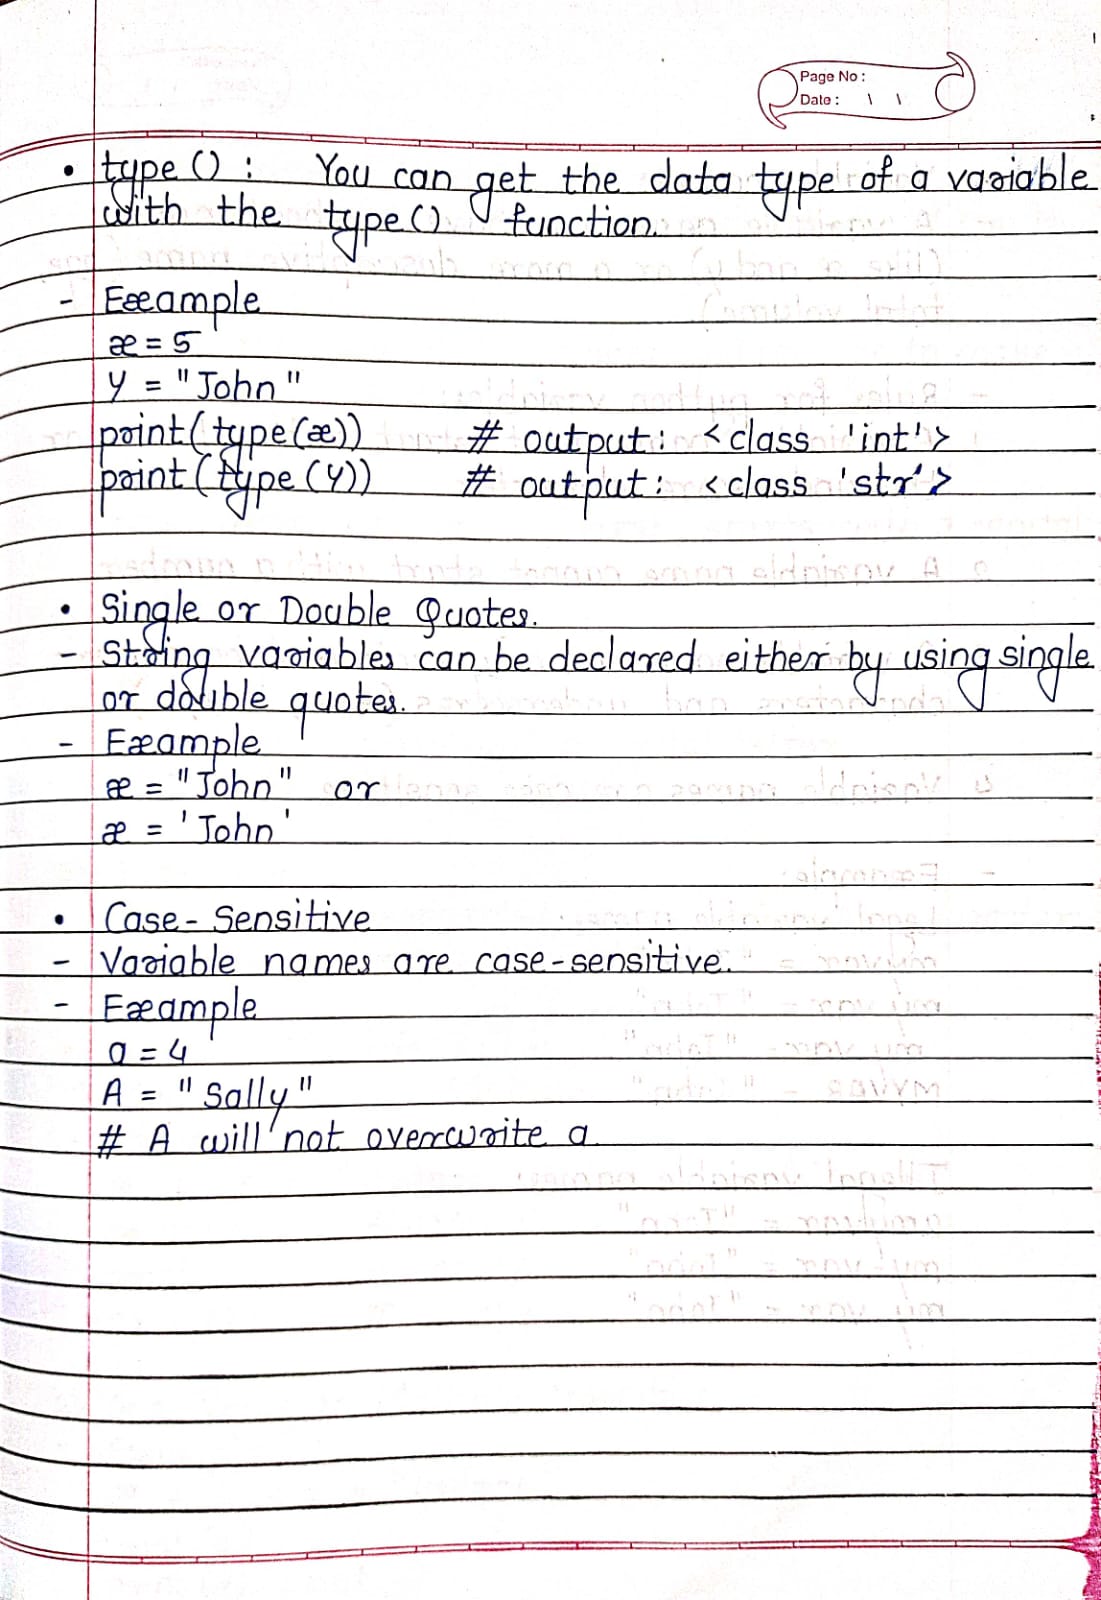 Page No :
Date : \ \
• type () : You can get the data type of a variable
with the type() function.
- Example
x = 5
y = "John"
print(type(x)) # output: <class 'int'>
print(type(y)) # output: <class 'str'>
• Single or Double Quotes.
- String variables can be declared either by using single
or double quotes.
- Example
x = "John" or
x = 'John'
• Case-Sensitive
- Variable names are case-sensitive.
- Example
a = 4
A = "Sally"
# A will not overwrite a